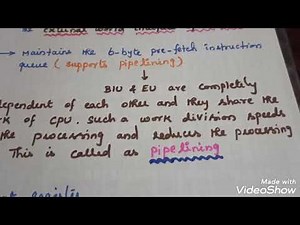 external world
→ Maintains the 6-byte pre-fetch instruction
queue (supports pipelining)
↓
BIU & EU are completely
dependent of each other and they share the
of CPU. Such a work division speeds
the processing and reduces the processing
This is called as pipelining
Made with
VideoShow